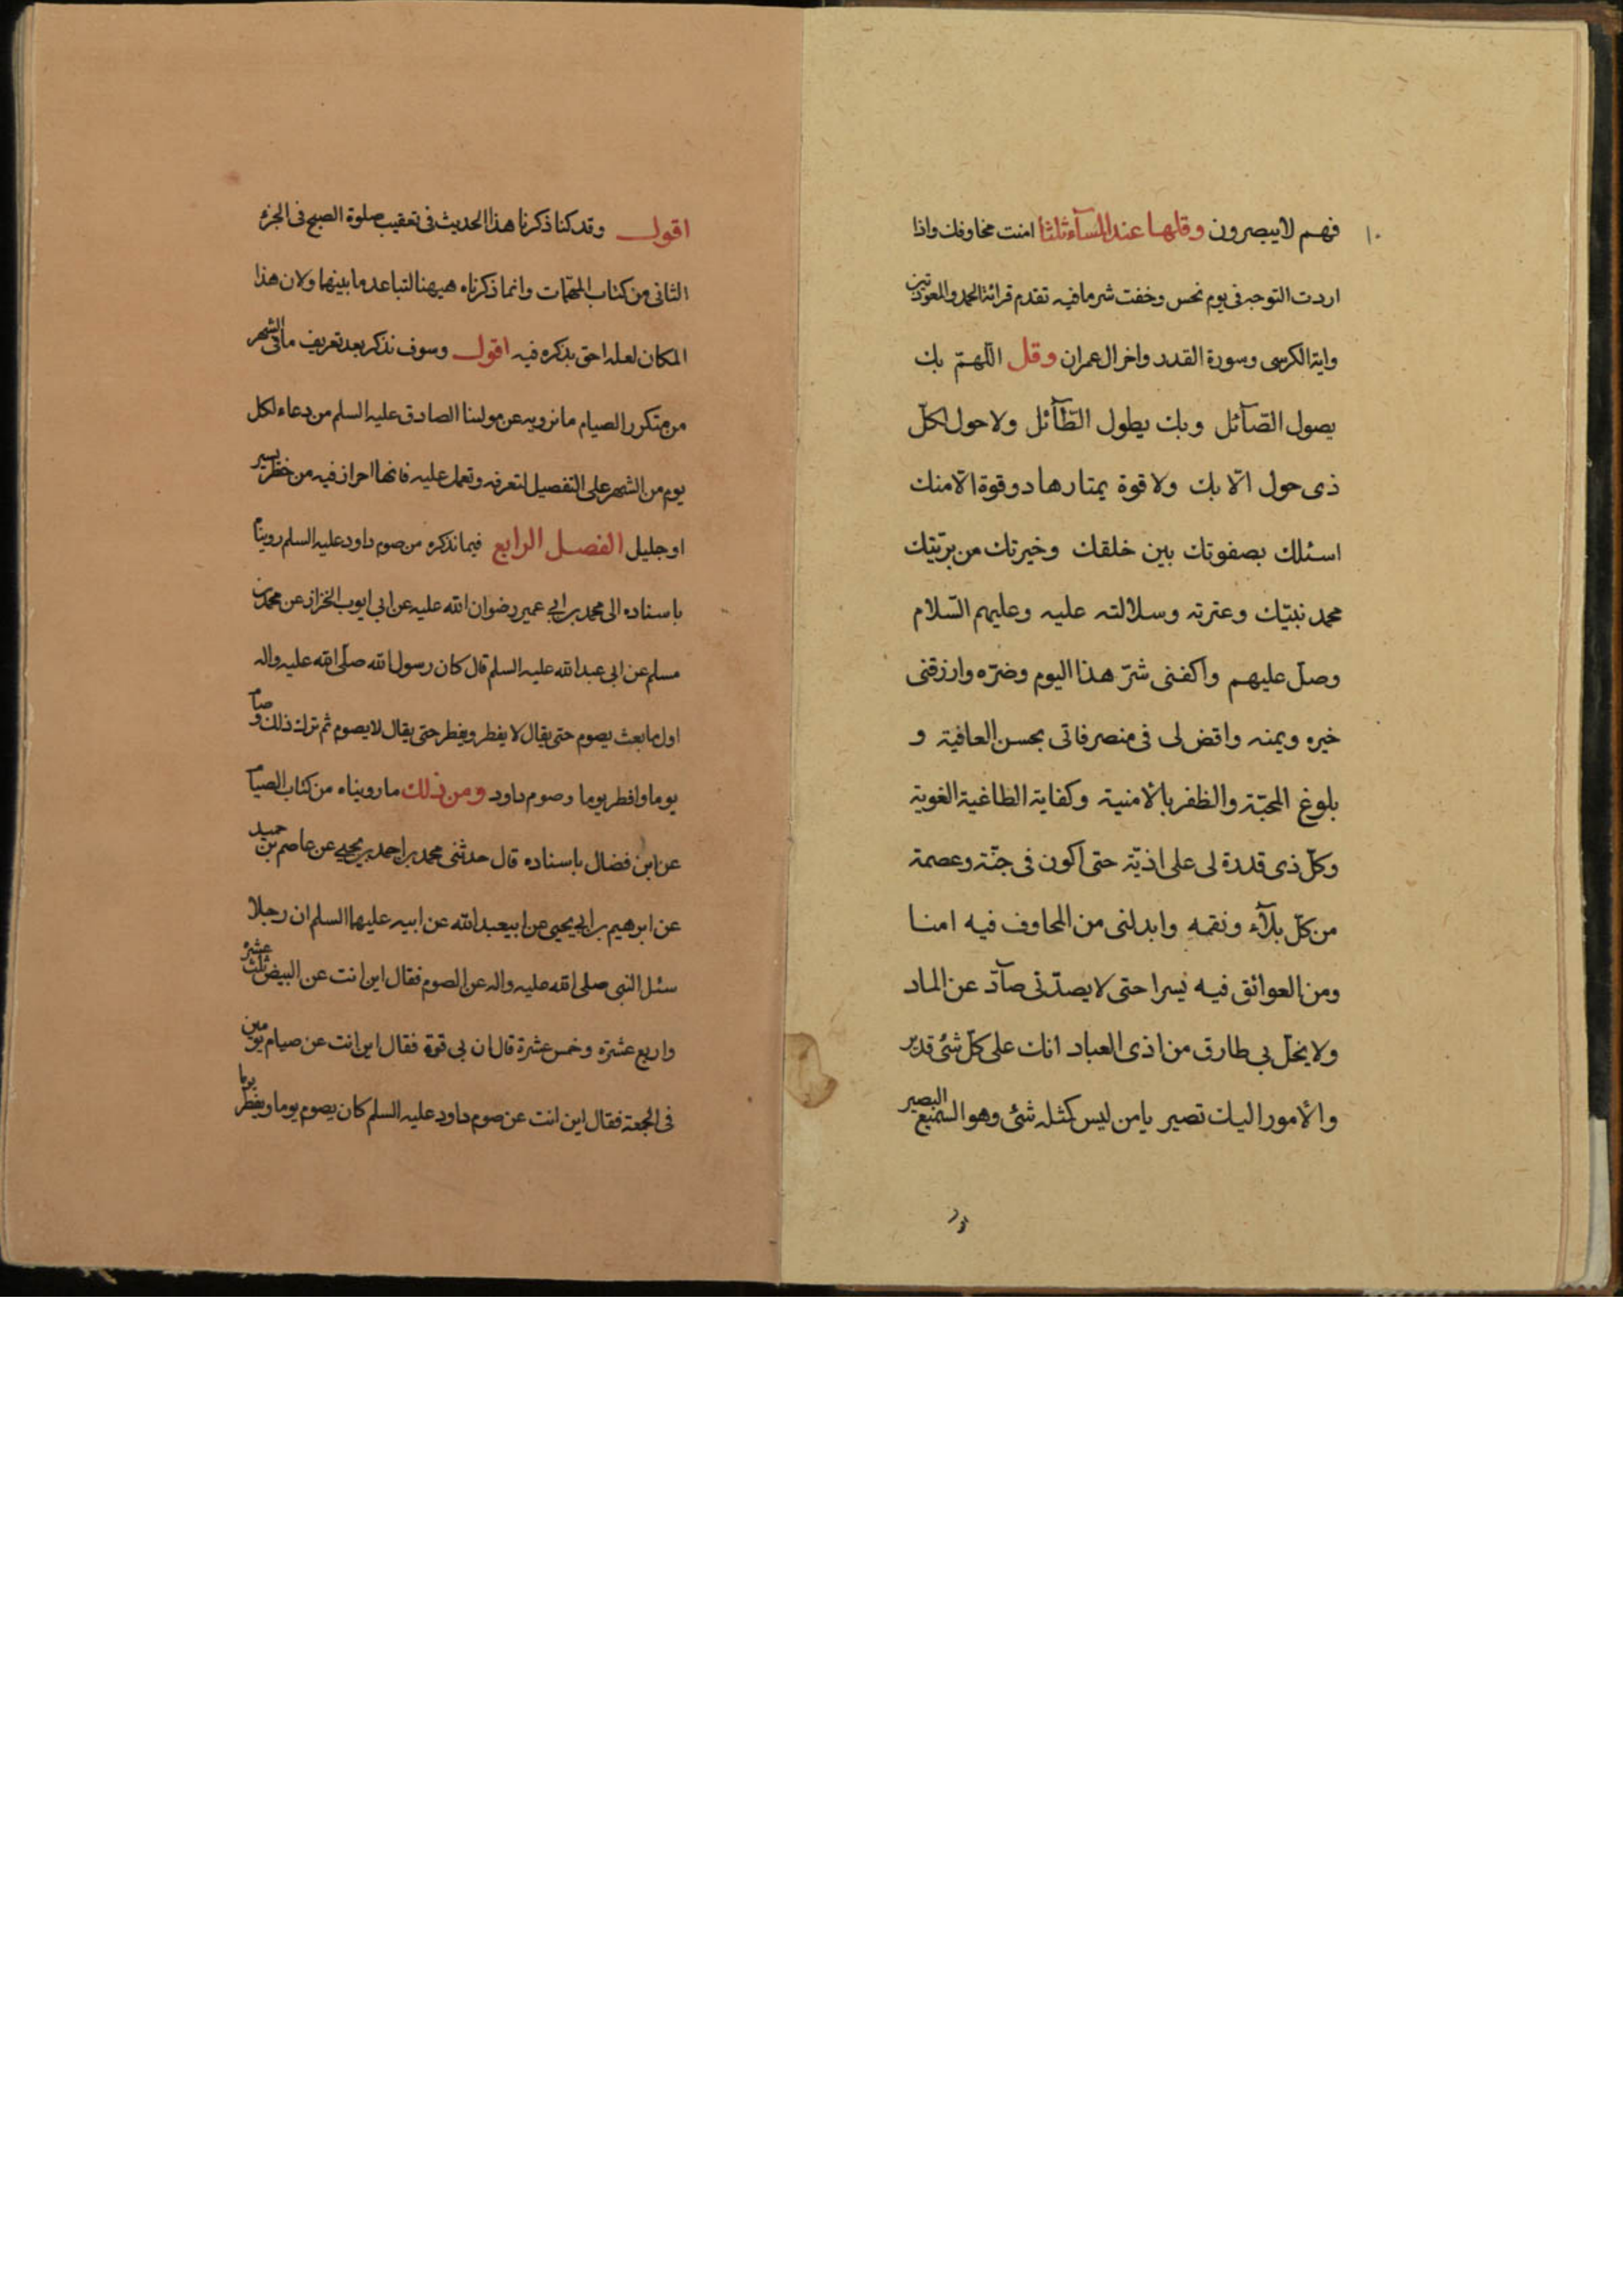 ١٠
فهم لا يبصرون وقلها عند المسآء ثلثا امنت مخاوفك واذا
اردت التوجه فى يوم نحس وخفت شر ما فيه تقدم قرائة الحمد والمعوذتين
واية الكرسى وسورة القدر واخر ال عمران وقل اللّهمّ بك
يصول الصّآئل وبك يطول الطّآئل ولا حول لكلّ
ذى حول الّا بك ولا قوة يمتارها ذو قوة الا منك
اسئلك بصفوتك بين خلقك وخيرتك من بريّتك
محمد نبيّك وعترته وسلالته عليه وعليهم السّلام
وصلّ عليهم واكفنى شرّ هذا اليوم وضرّه وارزقنى
خيره ويمنه واقض لى فى منصرفاتى بحسن العافية و
بلوغ المحبّة والظفر بالامنية وكفاية الطاغية الغوية
وكلّ ذى قدرة لى على اذيّة حتى اكون فى جنّة وعصمة
من كلّ بلآء ونقمه وابدلنى من المخاوف فيه امنا
ومن العوائق فيه يسرا حتى لا يصدّنى صآدّ عن المراد
ولا يحلّ بى طارق من اذى العباد انك على كلّ شئ قدير
والأمور اليك تصير يا من ليس كمثله شئ وهو السّميع البصير
اقول وقد كنا ذكرنا هذا الحديث فى تعقيب صلوة الصبح فى الجزء
الثانى من كتاب المهمّات وانما ذكرناه هيهنا لتباعد ما بينهما ولان هذا
المكان لعله احق بذكره فيه اقول وسوف نذكر بعد تعريف ما فى الشهر
من متكرر الصيام ما نرويه عن مولينا الصادق عليه السلم من دعاء لكل
يوم من الشهر على التفصيل لتعرفه وتعمل عليه فانها احراز فيه من خطر يسير
او جليل الفصل الرابع فيما نذكره من صوم داود عليه السلم روينا
باسناده الى محمد بن ابى عمير رضوان الله عليه عن ابى ايوب الخزاز عن محمد بن
مسلم عن ابى عبد الله عليه السلم قال كان رسول الله صلّى الله عليه واله
اول ما بعث يصوم حتى يقال لا يفطر ويفطر حتى يقال لا يصوم ثم ترك ذلك وصام
يوما وافطر يوما وصوم داود ومن ذلك ما رويناه من كتاب الصيام
عن ابن فضال باسناده قال حدثنى محمد بن احمد بن يحيى عن عاصم بن حميد
عن ابرهيم بن ابى يحيى عن ابيعبد الله عن ابيه عليهما السلم ان رجلا
سئل النبى صلى الله عليه واله عن الصوم فقال اين انت عن البيض ثلث عشرة
واربع عشرة وخمس عشرة قال ان بى قوة فقال اين انت عن صيام يومين
فى الجمعة فقال اين انت عن صوم داود عليه السلم كان يصوم يوما ويفطر يوما